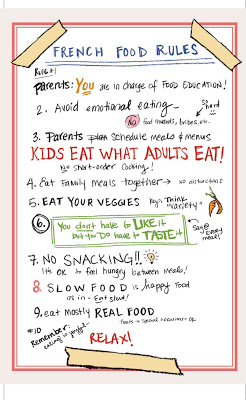 FRENCH FOOD RULES
Rule #1
Parents: You are in charge of FOOD EDUCATION!
2. Avoid emotional eating
So hard
NO food rewards, bribes, etc.
3. Parents plan schedule meals & menus
KIDS EAT WHAT ADULTS EAT!
No short-order cooking!
4. Eat Family meals together → no distractions
5. EAT YOUR VEGGIES Think "Variety"
6. You don't have to LIKE it
but you DO have to TASTE it
Say @ every meal!
7. NO SNACKING!!
It's OK to feel hungry between meals!
8. SLOW FOOD is happy food
as in - Eat slow!
9. eat mostly REAL FOOD
treats → special occasions = OK
#10
Remember: eating is joyful
RELAX!